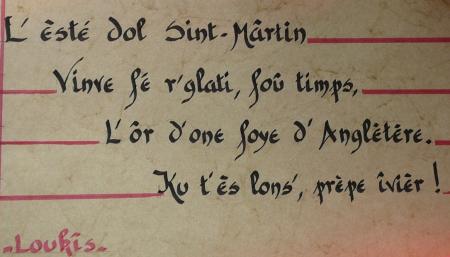 L' èsté dol Sint-Mârtin
Vinve fé r'glati, foû timps,
L'ôr d'one foye d'Anglètêre.
Ku t'ès lons', prèpe îviér !
Loukîs